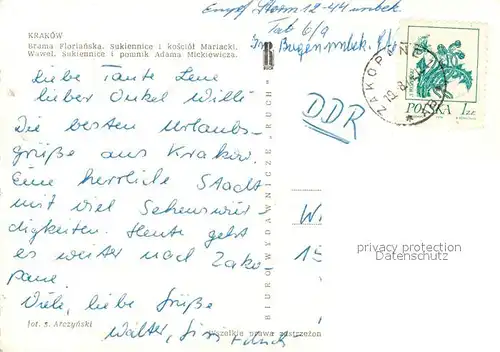 KRAKÓW
Brama Floriańska. Sukiennice i kościół Mariacki.
Wawel. Sukiennice i pomnik Adama Mickiewicza.
liebe Tante Lene
lieber Onkel Willi
Die besten Urlaubs-
grüße aus Kraków.
Eine herrliche Stadt
mit viel Sehenswür-
digkeiten. Heute geht
es weiter nach Zako
pane.
Viele, liebe Grüße
Walter,
fot. S. Arczyński
BIURO WYDAWNICZE „RUCH”
Wszelkie prawa zastrzeżon
ZAKOPANE
POLSKA 1 ZŁ
DDR
W
15
privacy protection
Datenschutz